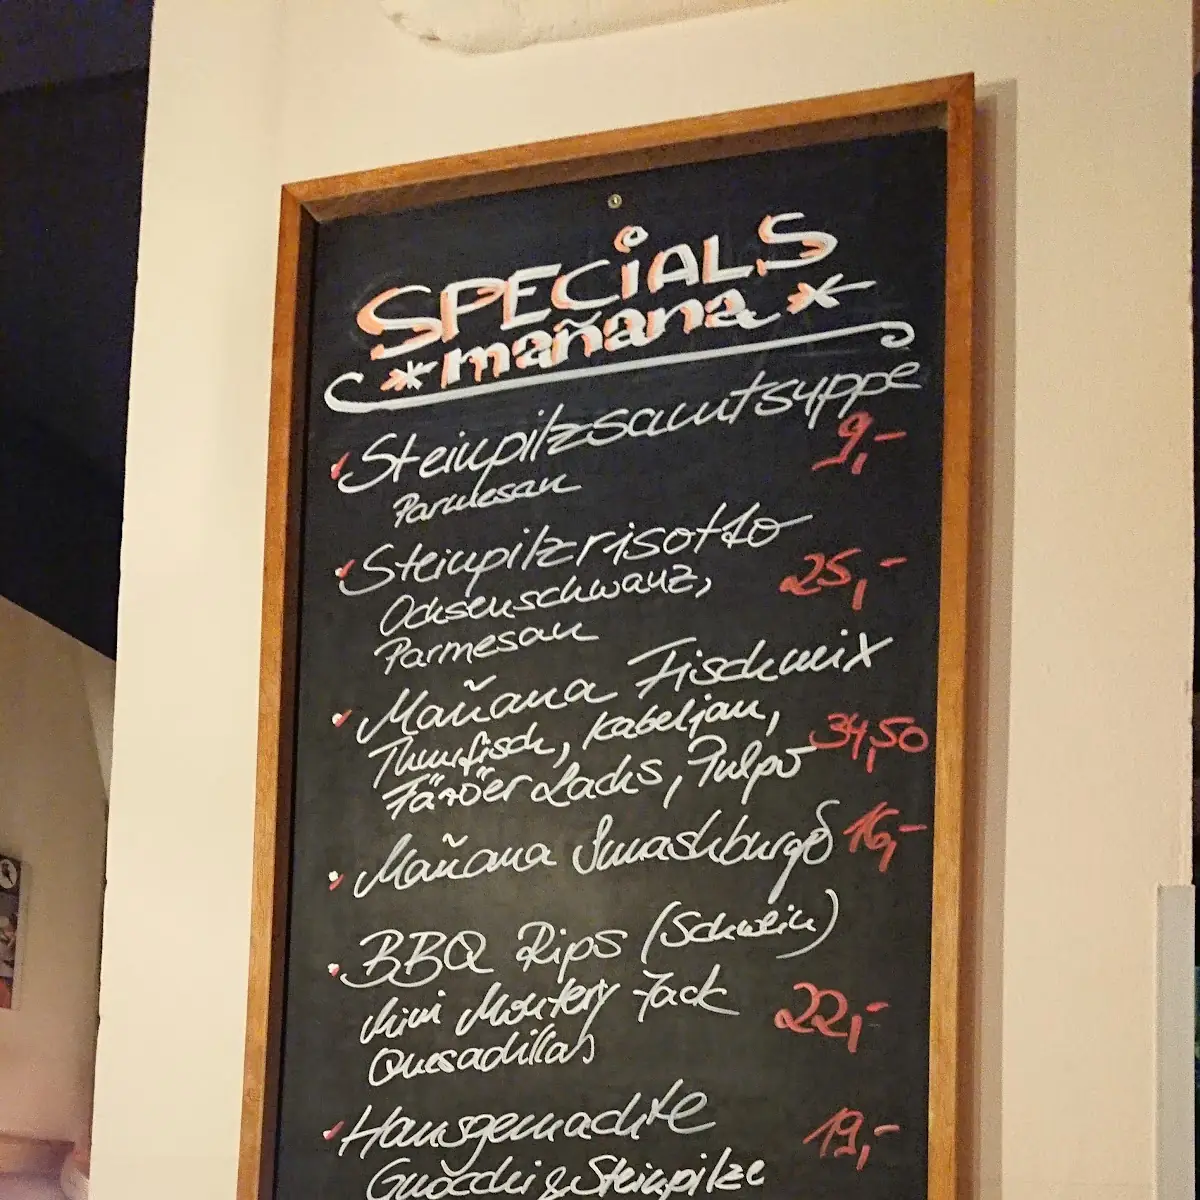 SPECiALS
mañana
Steinpilzsamtsuppe
9,-
Parmesan
Steinpilzrisotto
Ochsenschwanz,
25,-
Parmesan
Mañana Fischmix
Thunfisch, Kabeljau,
34,50
Färöer Lachs, Pulpo
Mañana Smashburger
16,-
BBQ Rips (Schwein)
Mini Monterey Jack
22,-
Quesadillas
Hausgemachte
19,-
Gnocchi & Steinpilze